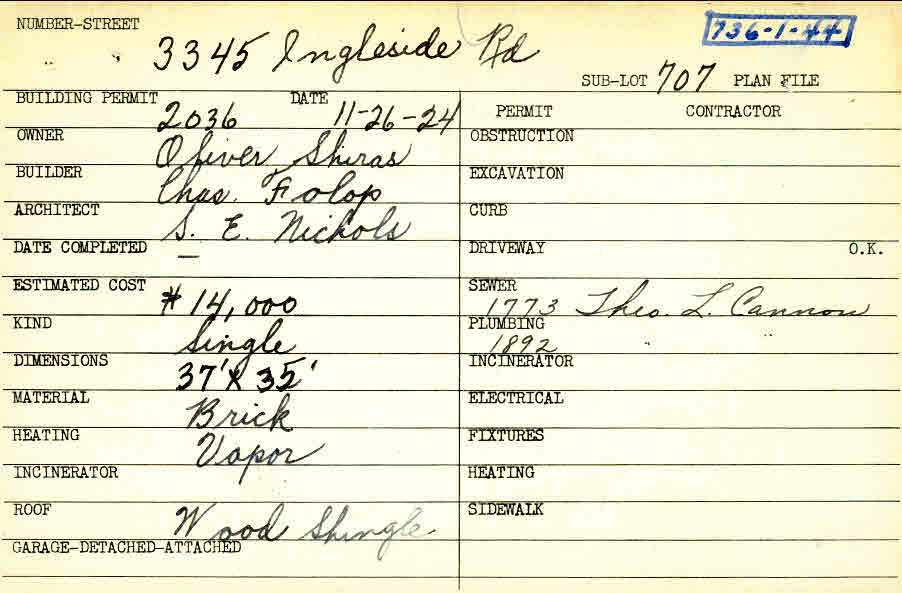 NUMBER-STREET
3345 Ingleside Rd
736-1-44
SUB-LOT 707 PLAN FILE
BUILDING PERMIT 2036 DATE 11-26-24
OWNER Oliver Shiras
BUILDER Chas. Folop
ARCHITECT S. E. Nichols
DATE COMPLETED —
ESTIMATED COST $14,000
KIND Single
DIMENSIONS 37' X 35'
MATERIAL Brick
HEATING Vapor
INCINERATOR
ROOF Wood Shingle
GARAGE-DETACHED-ATTACHED
PERMIT CONTRACTOR
OBSTRUCTION
EXCAVATION
CURB
DRIVEWAY O.K.
SEWER 1773 Theo. L. Cannon
PLUMBING 1892 " "
INCINERATOR
ELECTRICAL
FIXTURES
HEATING
SIDEWALK